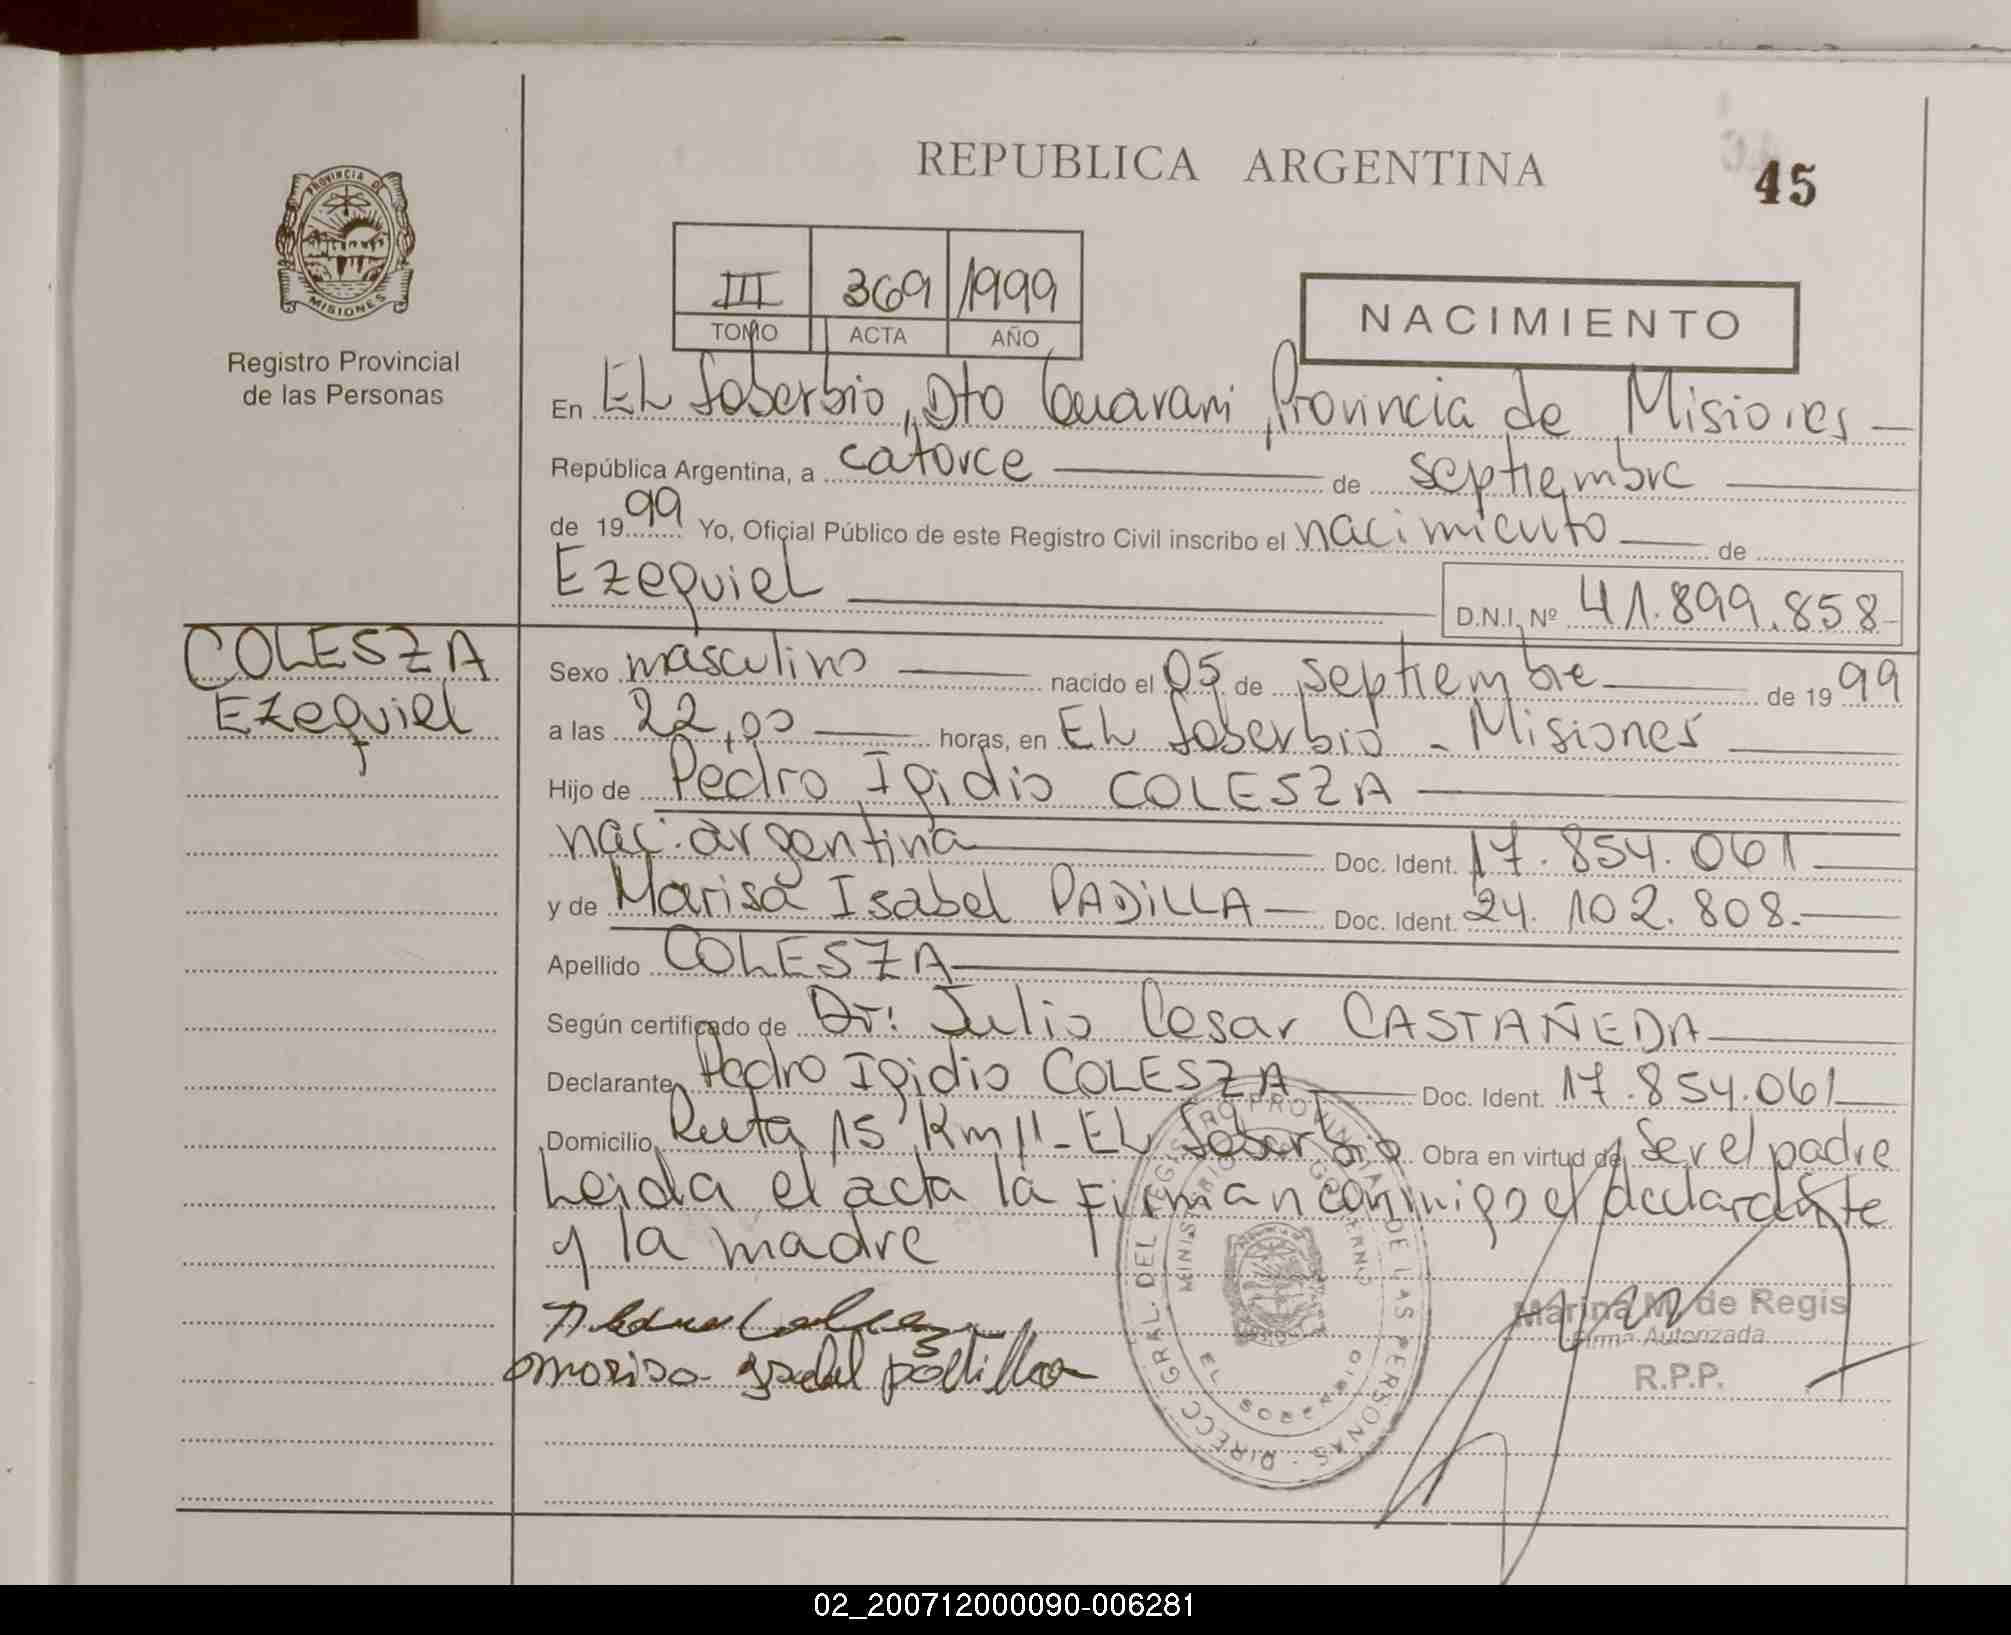 REPUBLICA ARGENTINA
45
PROVINCIA DE
MISIONES
Registro Provincial
de las Personas
III 369 1999
TOMO ACTA AÑO
NACIMIENTO
En EL Soberbio, Dto Guarani, Provincia de Misiones
República Argentina, a catorce de septiembre
de 1999 Yo, Oficial Público de este Registro Civil inscribo el nacimiento de
Ezequiel D.N.I. Nº 41.899.858
COLESZA
Ezequiel
Sexo masculino nacido el 05 de septiembre de 1999
a las 22,00 horas, en EL Soberbio - Misiones
Hijo de Pedro Igidio COLESZA
nac. argentina Doc. Ident. 17.854.061
y de Marisa Isabel PADILLA Doc. Ident. 24.102.808.
Apellido COLESZA
Según certificado de Dr: Julio Cesar CASTAÑEDA
Declarante Pedro Igidio COLESZA Doc. Ident. 17.854.061
Domicilio Ruta 15 Km 11 - EL Soberbio Obra en virtud de Ser el padre
Leida el acta la firman conmigo el declarante
y la madre
marisa ysabel padilla
DIRECC. GRAL. DEL REGISTRO PROVINCIAL DE LAS PERSONAS
MINISTERIO DE GOBIERNO
EL SOBERBIO
Marina M. de Regis
Firma Autorizada
R.P.P.
02_200712000090-006281